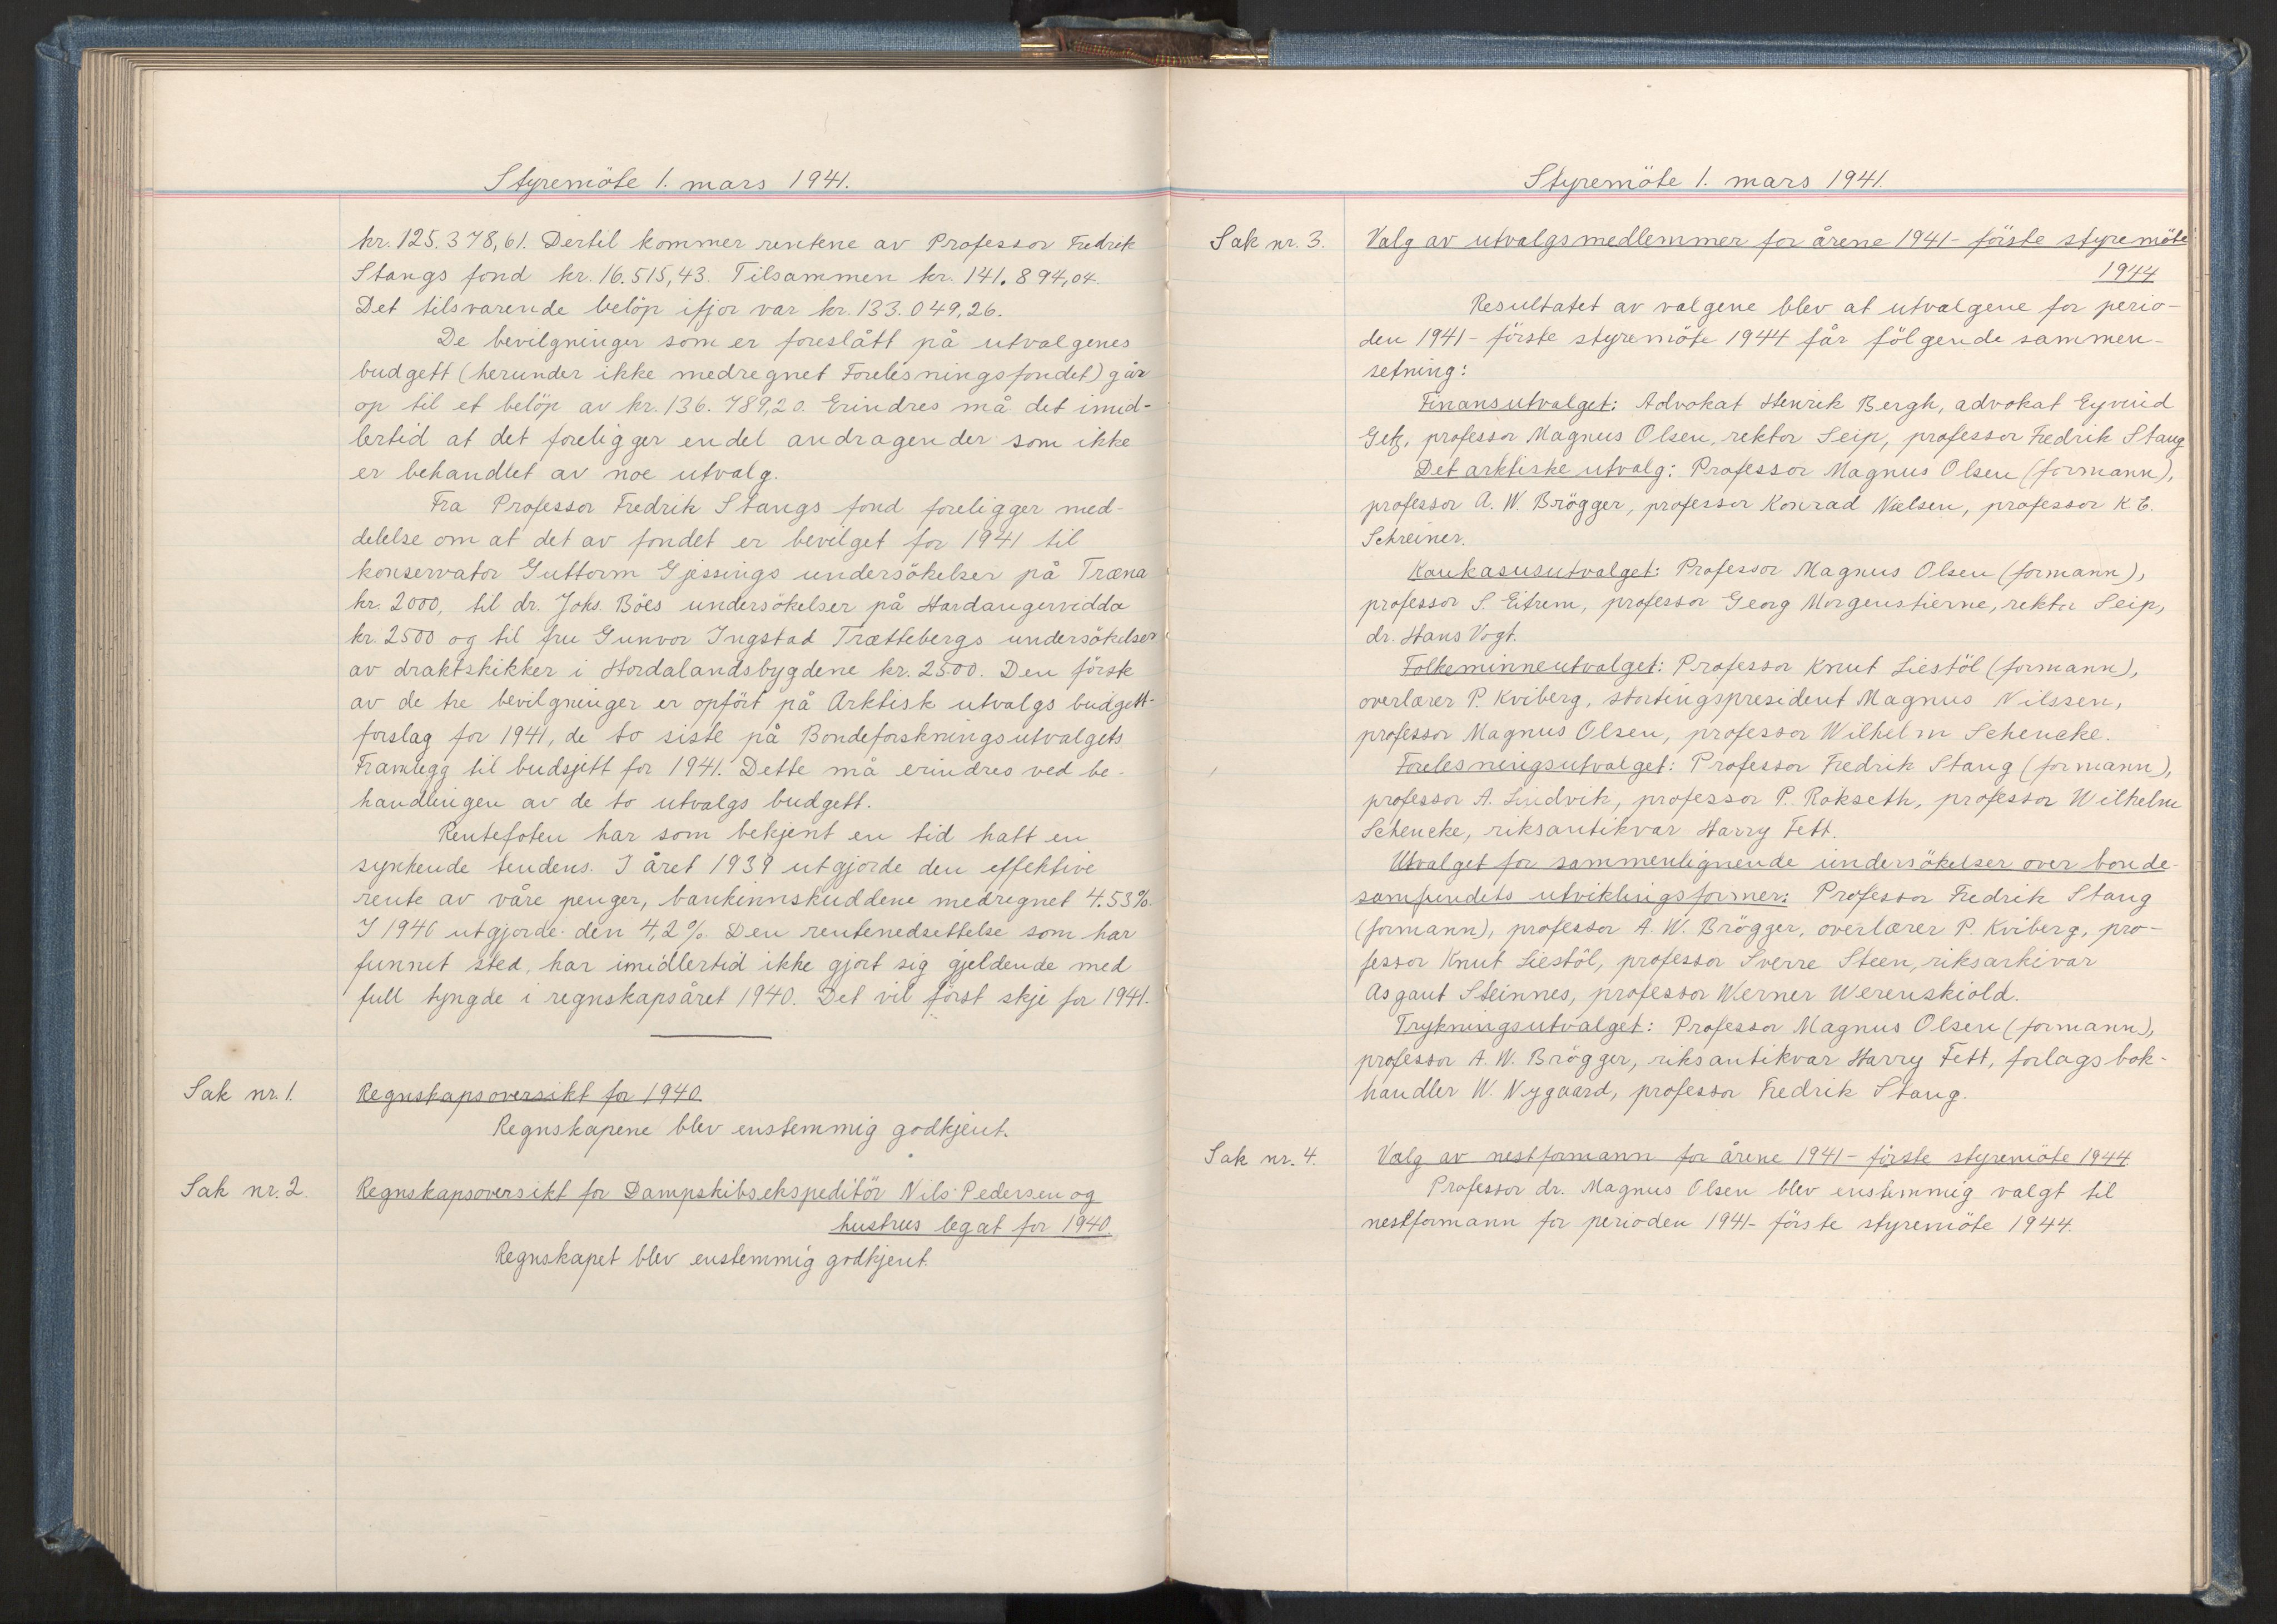 Styremöte 1. mars 1941.
kr. 125.378,61. Dertil kommer rentene av Professor Fredrik
Stangs fond kr. 16.515,43. Tilsammen kr. 141.894,04.
Det tilsvarende belöp ifjor var kr. 133.049,26.
De bevilgninger som er foreslått på utvalgenes
budgett (herunder ikke medregnet Forelesningsfondet) går
op til et belöp av kr. 136.789,20. Erindres må det imid-
lertid at det foreligger endel andragender som ikke
er behandlet av noe utvalg.
Fra Professor Fredrik Stangs fond foreligger med-
delelse om at det av fondet er bevilget for 1941 til
konservator Guttorm Gjessings undersökelser på Træna
kr. 2000, til dr. Johs. Böes undersökelser på Hardangervidda
kr. 2500 og til fru Gunvor Ingstad Trættebergs undersökelser
av draktskikker i Hordalandsbygdene kr. 2500. Den förste
av de tre bevilgninger er opfört på Arktisk utvalgs budgett-
forslag for 1941, de to siste på Bondeforskningsutvalgets
Framlegg til budsjett for 1941. Dette må erindres ved be-
handlingen av de to utvalgs budgett.
Rentefoten har som bekjent en tid hatt en
synkende tendens. I året 1939 utgjorde den effektive
rente av våre penger, bankinnskuddene medregnet 4.53%.
I 1940 utgjorde den 4,2%. Den rentenedsettelse som har
funnet sted, har imidlertid ikke gjort sig gjeldende med
full tyngde i regnskapsåret 1940. Det vil först skje for 1941.
Sak nr. 1. Regnskapsoversikt for 1940.
Regnskapene blev enstemmig godkjent.
Sak nr. 2. Regnskapsoversikt for Dampskibsekspeditör Nils Pedersen og
hustrus legat for 1940.
Regnskapet blev enstemmig godkjent.
Styremöte 1. mars 1941.
Sak nr. 3. Valg av utvalgsmedlemmer for årene 1941- förste styremöte
1944
Resultatet av valgene blev at utvalgene for perio-
den 1941- förste styremöte 1944 får fölgende sammen-
setning:
Finansutvalget: Advokat Henrik Bergh, advokat Eyvind
Getz, professor Magnus Olsen, rektor Seip, professor Fredrik Stang
Det arktiske utvalg: Professor Magnus Olsen (formann),
professor A. W. Brögger, professor Konrad Nielsen, professor K. E.
Schreiner.
Kaukasusutvalget: Professor Magnus Olsen (formann),
professor S. Eitrem, professor Georg Morgenstierne, rektor Seip,
dr. Hans Vogt.
Folkeminneutvalget: Professor Knut Liestöl (formann),
overlærer P. Kviberg, stortingspresident Magnus Nilssen,
professor Magnus Olsen, professor Wilhelm Schencke.
Forelesningsutvalget: Professor Fredrik Stang (formann),
professor A. Lindvik, professor P. Rokseth, professor Wilhelm
Schencke, riksantikvar Harry Fett.
Utvalget for sammenlignende undersökelser over bonde-
samfundets utviklingsformer: Professor Fredrik Stang
(formann), professor A. W. Brögger, overlærer P. Kviberg, pro-
fessor Knut Liestöl, professor Sverre Steen, riksarkivar
Asgaut Steinnes, professor Werner Werenskiold.
Trykningsutvalget: Professor Magnus Olsen (formann),
professor A. W. Brögger, riksantikvar Harry Fett, forlagsbok-
handler W. Nygaard, professor Fredrik Stang.
Sak nr. 4. Valg av nestformann for årene 1941- förste styremöte 1944
Professor dr. Magnus Olsen blev enstemmig valgt til
nestformann for perioden 1941- förste styremöte 1944.